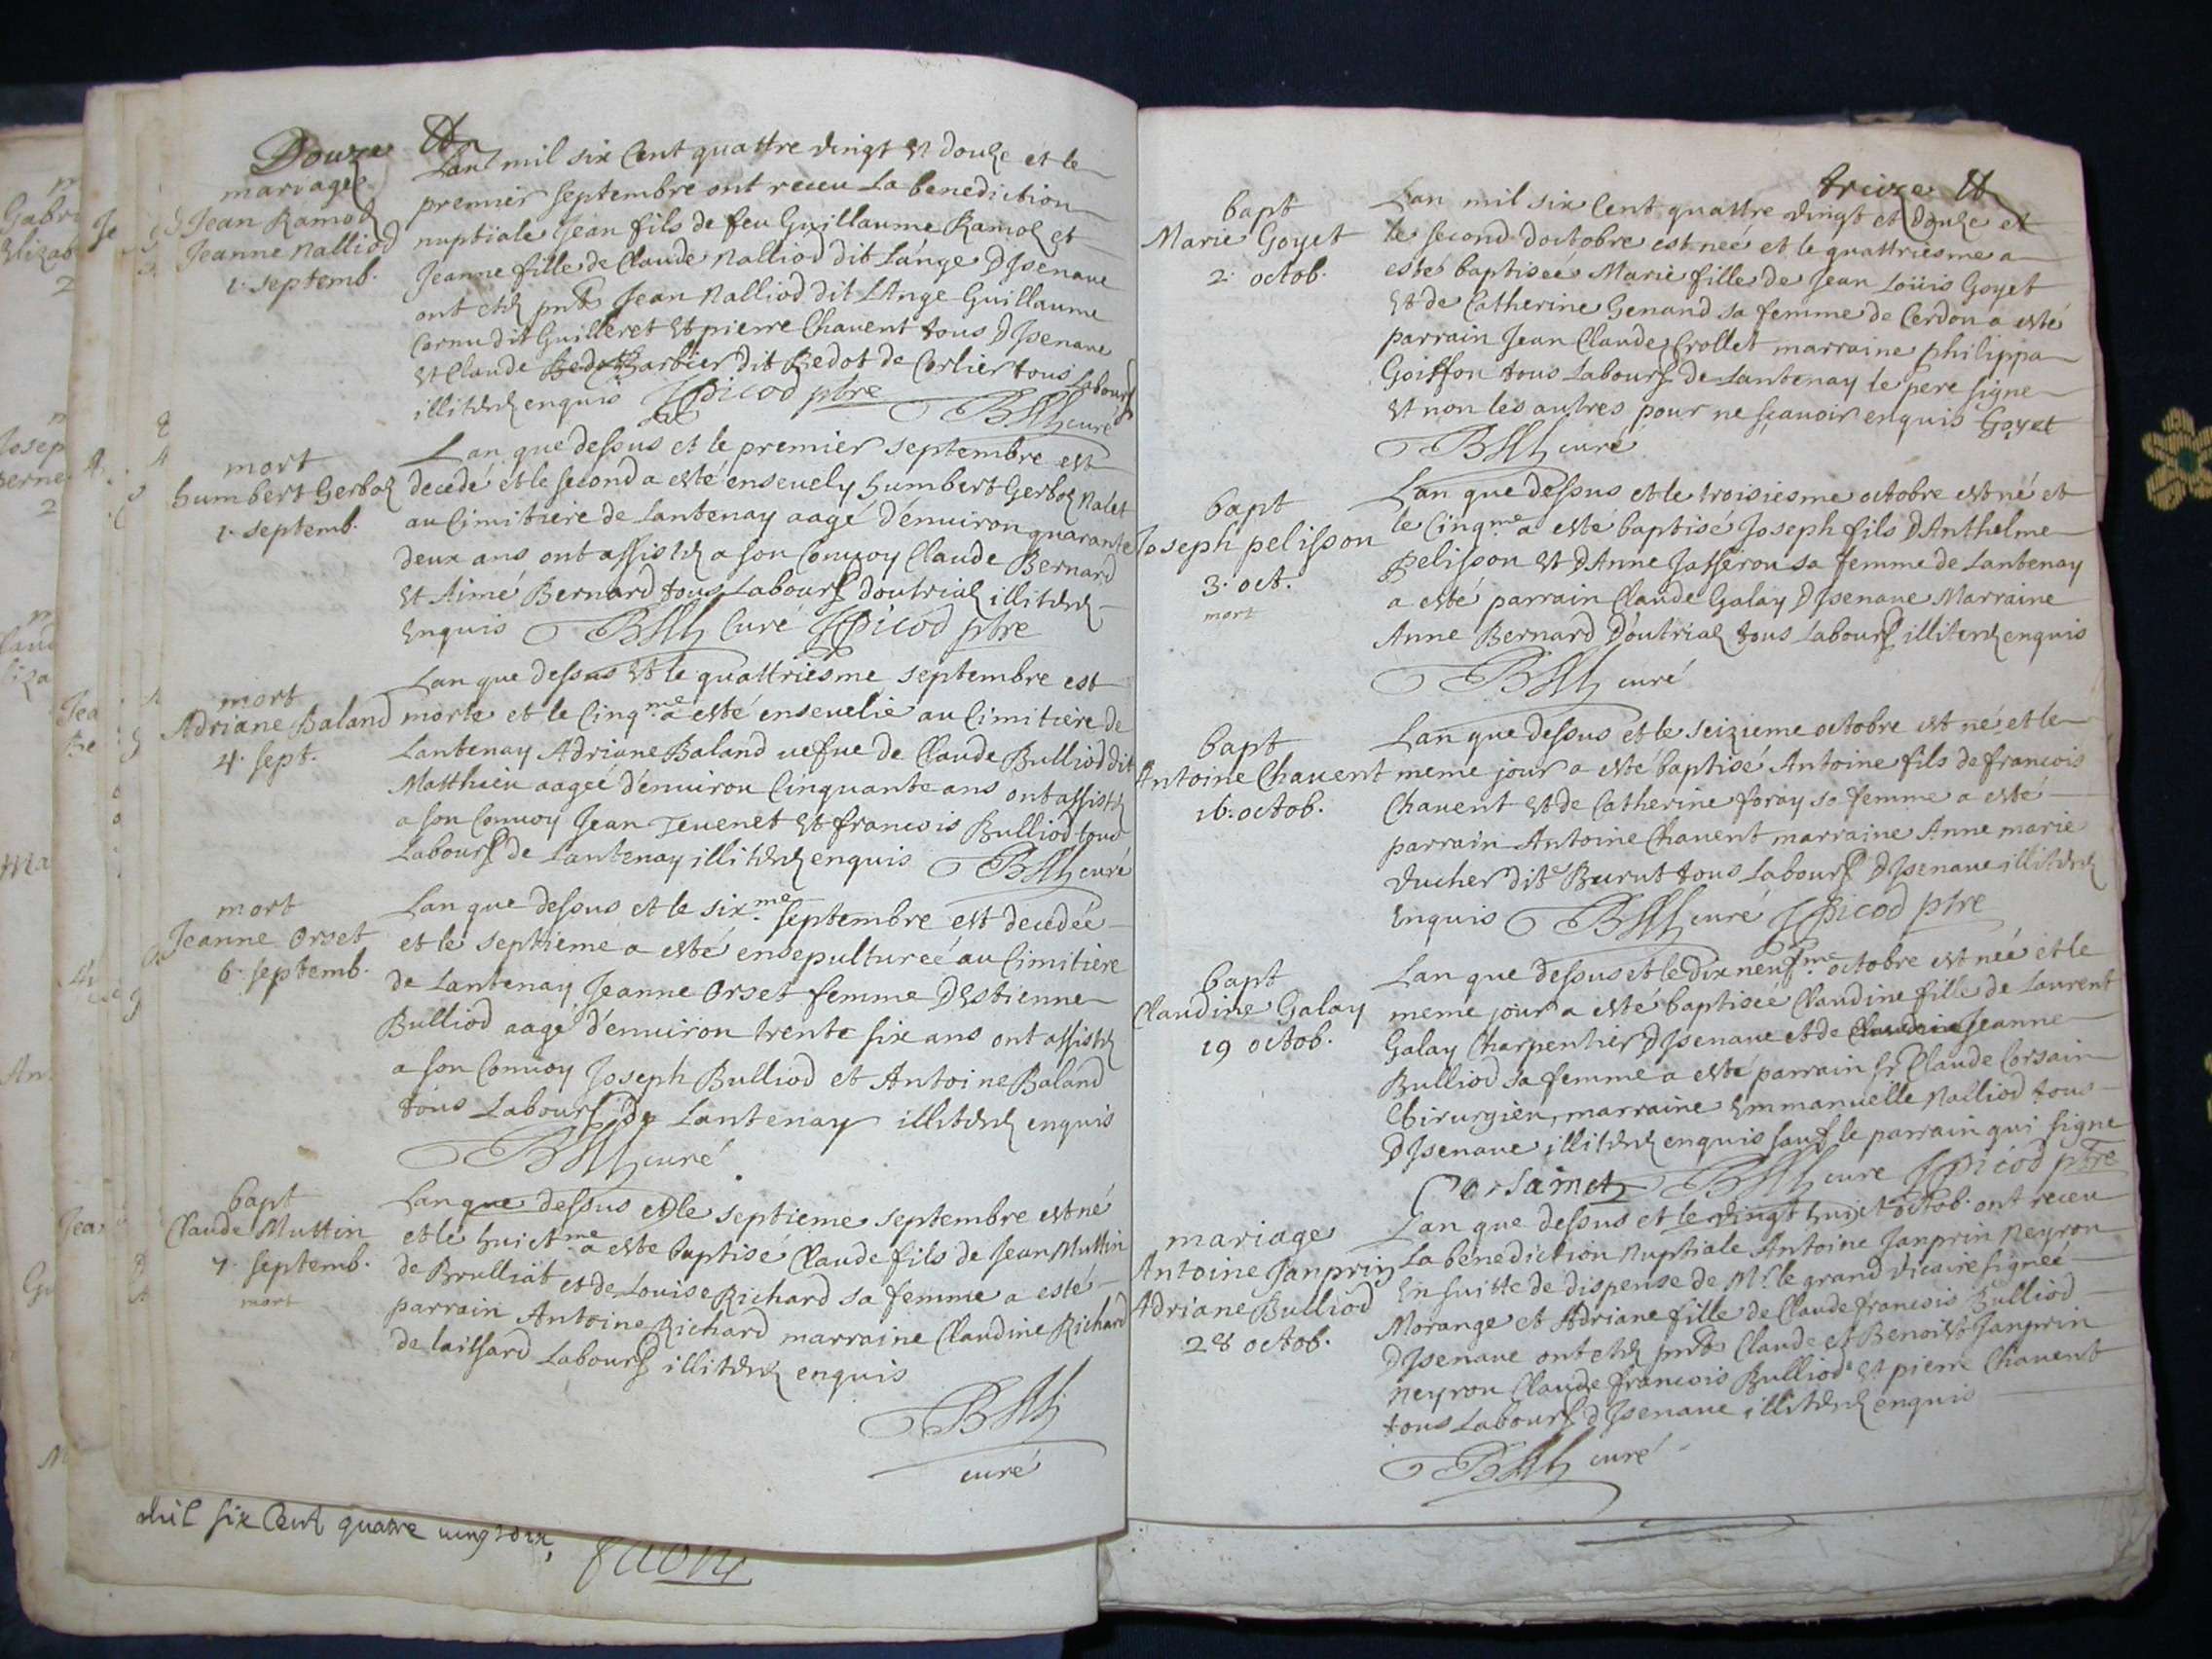 Douze
mariage
Jean Ramoz
Jeanne Nalliod
1. septemb.
Lan mil six Cent quattre vingt et douze et le
premier septembre ont receu La benediction
nuptiale Jean fils de feu Guillaume Ramoz et
Jeanne fille de Claude Nalliod dit Lánge DJsenaue
ont etez pnts Jean Nalliod dit LAnge Guillaume
Cornu dit Guilleret et pierre Chauent tous DJsenaue
et Claude Barbier dit Bedot de Corlier tous Labours
illiterez enquis JPicod ptre
curé
mort
humbert Gerboz
1. septemb.
Lan que dessus et le premier septembre est
decedé et le second a esté enseuely humbert Gerboz Nalet
au Cimitiere de Lantenay aagé d'enuiron quarante
deux ans ont assistez a son Conuoy Claude Bernard
et Aimé Bernard tous Labours doutriaz illiterez
enquis Curé JPicod ptre
mort
Adriane Baland
4. sept.
Lan que dessus et le quattriesme septembre est
morte et le Cinqme a esté enseuelie au Cimitiere de
Lantenay Adriane Baland uefue de Claude Bulliod dit
Matthieu aageé d'enuiron Cinquante ans ont assistez
a son Conuoy Jean Teuenet et francois Bulliod tous
Labours de Lantenay illiterez enquis curé
mort
Jeanne Orset
6. septemb.
Lan que dessus et le sixme septembre est decedée
et le septieme a esté ensepultureé au Cimitiere
de Lantenay Jeanne Orset femme DEstienne
Bulliod aagé d'enuiron trente six ans ont assistez
a son Conuoy Joseph Bulliod et Antoine Baland
tous Labours de Lantenay illiterez enquis
curé
bapt
Claude Muttin
7. septemb.
mort
Lan que dessus et le septieme septembre est né
et le huictme a este baptisé Claude fils de Jean Muttin
de Brulliat et de Louise Richard sa femme a esté
parrain Antoine Richard marraine Claudine Richard
de laissard Labours illiterez enquis
curé
mil six Cent quatre uingt dix,
treize
bapt
Marie Goyet
2. octob.
Lan mil six Cent quattre vingt et douze et
le second doctobre est neé et le quattriesme a
esté baptiseé Marie fille de Jean Loüis Goyet
et de Catherine Genand sa femme de Cerdon a esté
parrain Jean Claude Crollet marraine philippa
Goiffon tous Labours de Lantenay le pere signe
et non les autres pour ne sçauoir enquis Goyet
curé
bapt
Joseph pelisson
3. oct.
mort
Lan que dessus et le troisiesme octobre est né et
le Cinqme a esté baptisé Joseph fils DAnthelme
pelisson et DAnne Jasseron sa femme de Lantenay
a esté parrain Claude Galay DJsenaue Marraine
Anne Bernard Doutriaz tous Labours illiterez enquis
curé
bapt
Antoine Chauent
16. octob.
Lan que dessus et le seizieme octobre est né et le
meme jour a esté baptisé Antoine fils de francois
Chauent et de Catherine foray sa femme a esté
parrain Antoine Chauent marraine Anne marie
Vucher dite Burut tous Labours DJsenaue illiterez
enquis curé JPicod ptre
bapt
Claudine Galay
19 octob.
Lan que dessus et le dix neufme octobre est neé et le
meme jour a esté baptiseé Claudine fille de Laurent
Galay Charpentier DJsenaue et de Jeanne
Bulliod sa femme a esté parrain Sr Claude Corsain
Chirurgien, marraine Emmanuelle Nalliod tous
DJsenaue illiterez enquis sauf le parrain qui signe
curé JPicod ptre
mariage
Antoine Janprin
Adriane Bulliod
28 octob.
Lan que dessus et le vingt huict octob. ont receu
La benediction Nuptiale Antoine Janprin Neyron
En suitte de dispense de Mr. le grand Vicaire signeé
Morange et Adriane fille de Claude francois Bulliod
DJsenaue ont etez pnts Claude et Benoist Janprin
Neyron Claude francois Bulliod et pierre Chauent
tous Labours dJsenaue illiterez enquis
curé